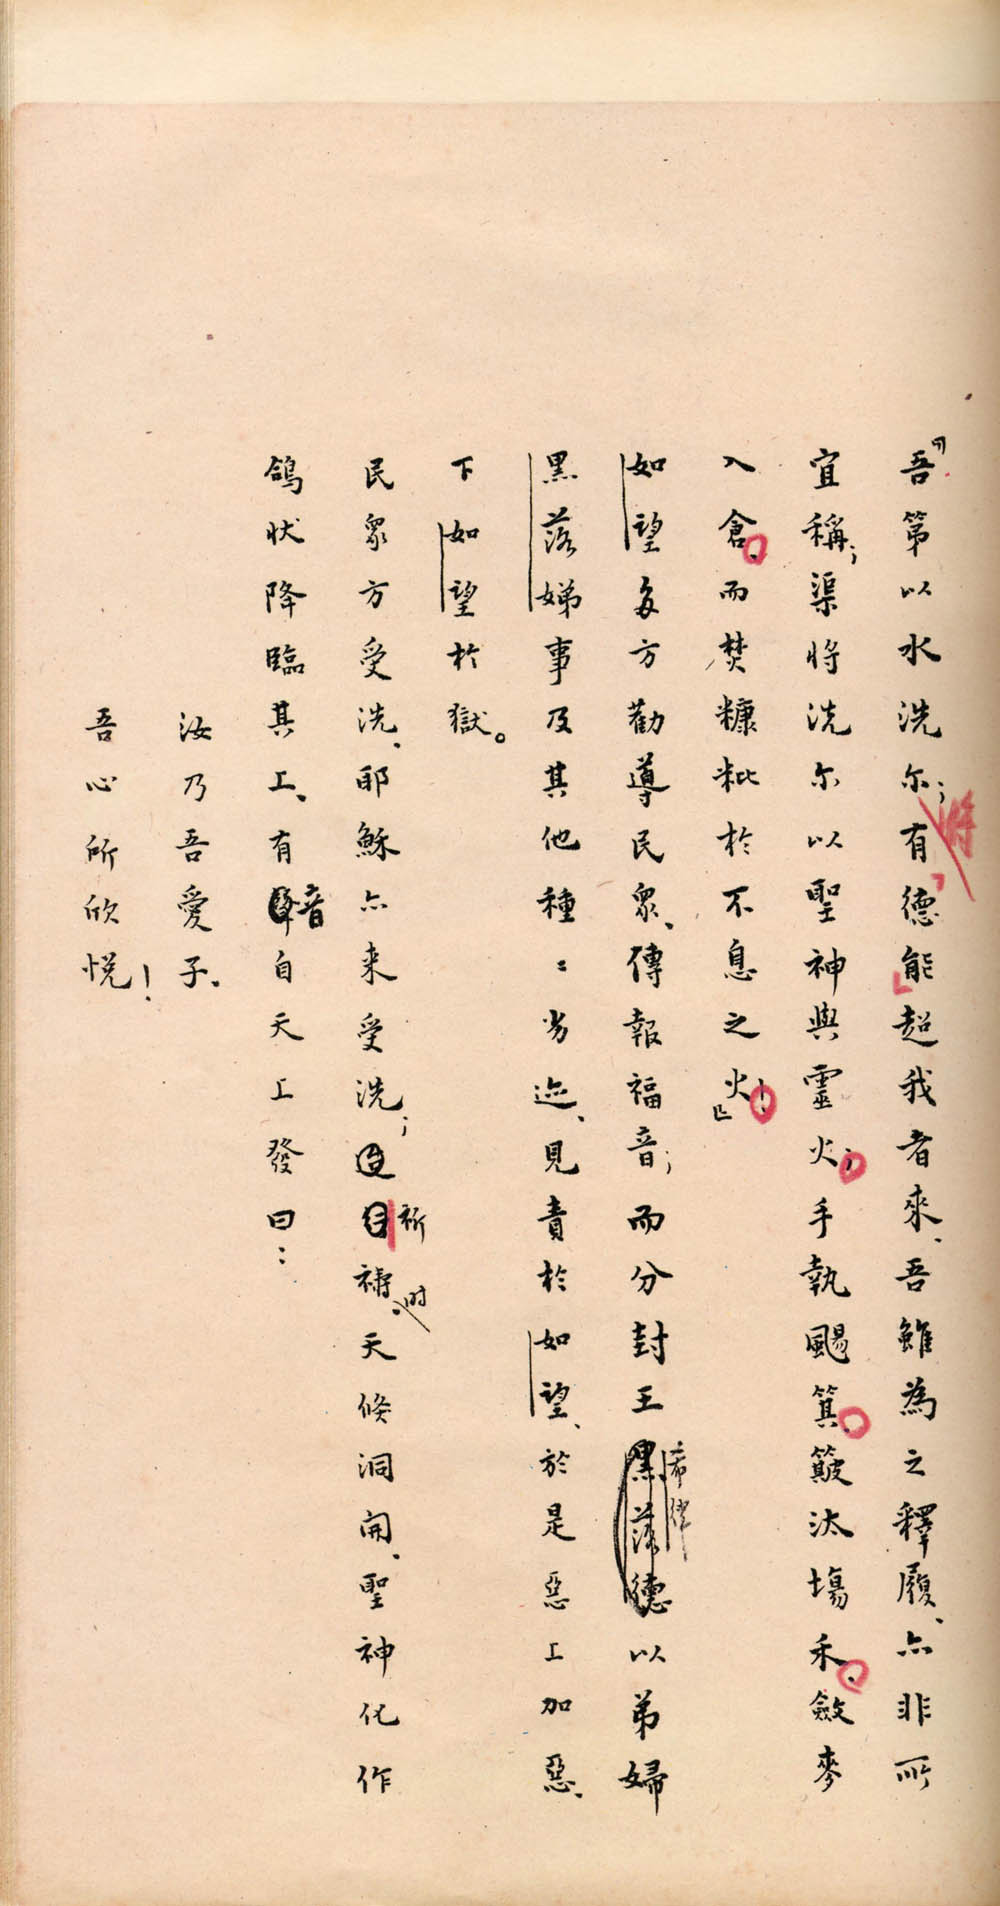 「吾第以水洗尔；有將德能超我者來、吾雖為之釋履、亦非所
宜稱；渠將洗尔以聖神與靈火；手執颺箕、簸汰塲禾、斂麥
入倉、而焚糠粃於不息之火！」
如望多方勸導民眾、傳報福音；而分封王希律以弟婦
黑落娣事及其他種〻劣迹、見責於如望、於是惡上加惡、
下如望於獄。
民眾方受洗、耶穌亦来受洗；祈禱時、天倏洞開、聖神化作
鴿状降臨其上、有音自天上發曰：
汝乃吾愛子、
吾心所欣悅！